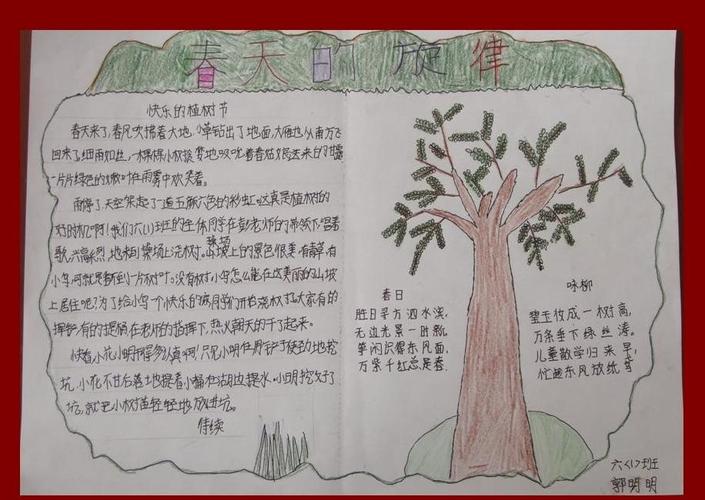 春天的旋律
快乐的植树节
春天来了,春风吹拂着大地,小草钻出了地面,大雁也从南方飞
回来了,细雨如丝,一棵棵小树
一片片绿色的 在雨雾中欢笑着。
雨停了,天空架起了一道五颜六色的彩虹。这真是植树的
好时机啊!我们六(1)班的全体同学在彭老师的带领下,唱着
歌,兴高 烈,地来到操场上浇树。山坡上的景色很美,有 草,有
小鸟,可就是看不到一片树叶。没有树,小鸟怎么能在这美丽的山坡
上居住呢?为了给小鸟一个快乐的 同学们开始浇树了。大家有的
有的提锅在老师的指挥下,热火朝天的干了起来。
快看,小花小明干得多认真啊!只见小明在
坑,小花不甘后 地提着小桶在湖边提水。小明挖好了
坑,就把小树苗轻轻地放进坑。
待续
春日
胜日寻方泗水滨,
无边光景一时新,
等闲识得东风面,
万紫千红总是春。
咏柳
碧玉妆成一树高,
万条垂下绿丝涛。
儿童散学归来早,
忙趁东风放纸鸢
六<1>班
郭明明